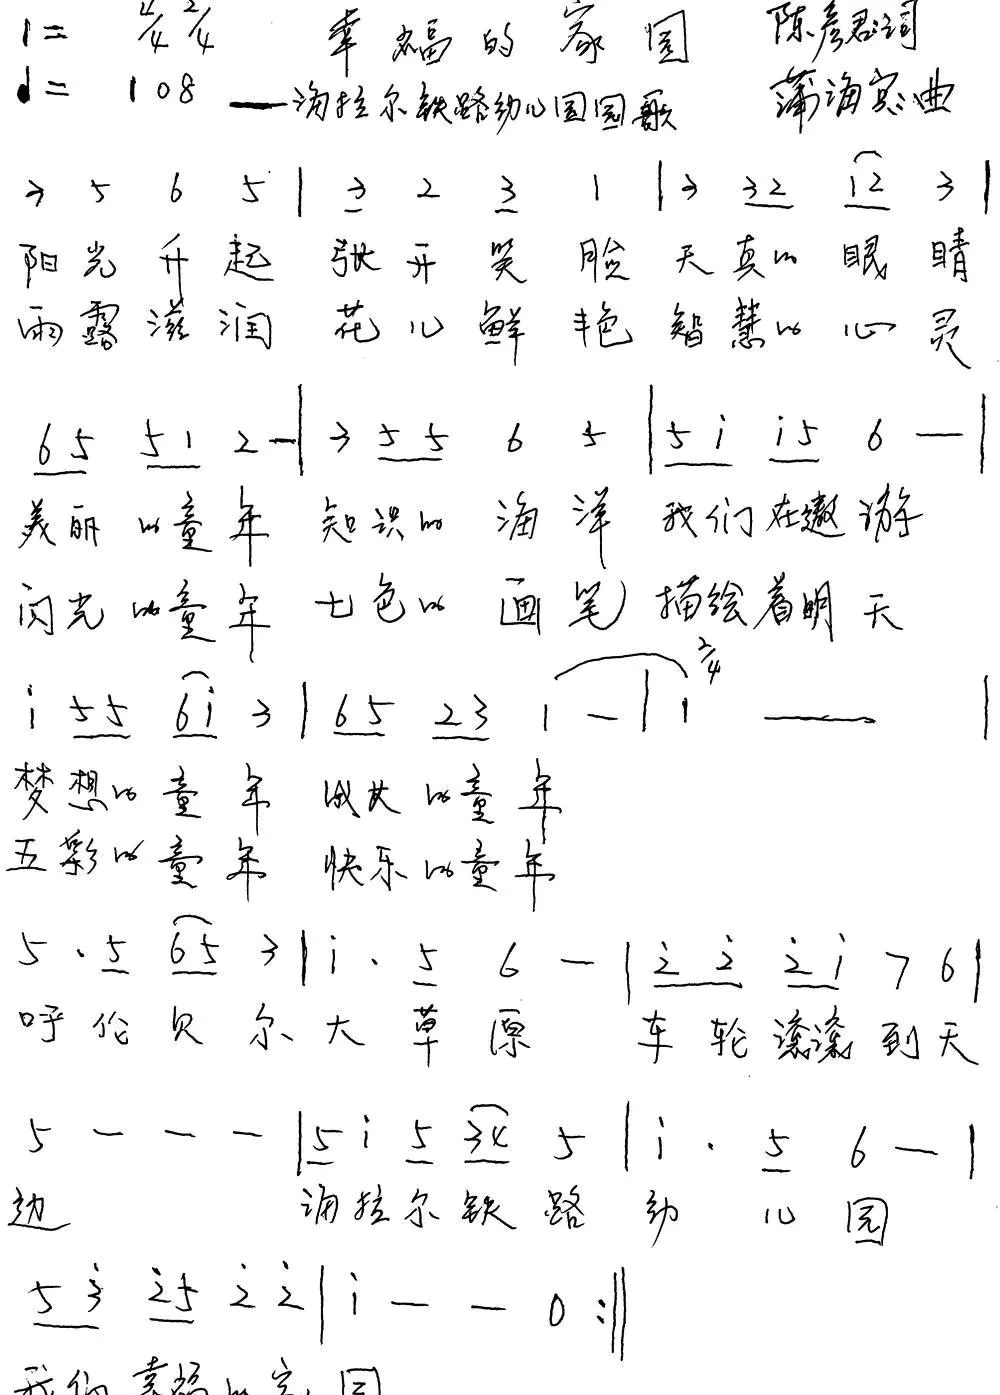 1= 4/4 2/4 幸福的家园 陈彦君词
♩= 108 ——海拉尔铁路幼儿园园歌 蒲海宽曲
3 5 6 5 | 3 2 3 1 | 3 32 12 3 |
阳光升起 张开笑脸 天真的眼睛
雨露滋润 花儿鲜艳 智慧的心灵
65 51 2 — | 3 55 6 5 | 5i i5 6 — |
美丽的童年 知识的海洋 我们在遨游
闪光的童年 七色的画笔 描绘着明天
i 55 6i 3 | 65 23 1 — | 2/4 1 — |
梦想的童年 成长的童年
五彩的童年 快乐的童年
5 · 5 65 3 | i · 5 6 — | 2̇ 2̇ 2̇i 7 6 |
呼伦贝尔大草原 车轮滚滚到天
5 — — — | 5 i 5 34 5 | i · 5 6 — |
边 海拉尔铁路幼儿园
5 3̇ 2̇5 2̇ 2̇ | i — — 0 :‖
我们幸福的家园